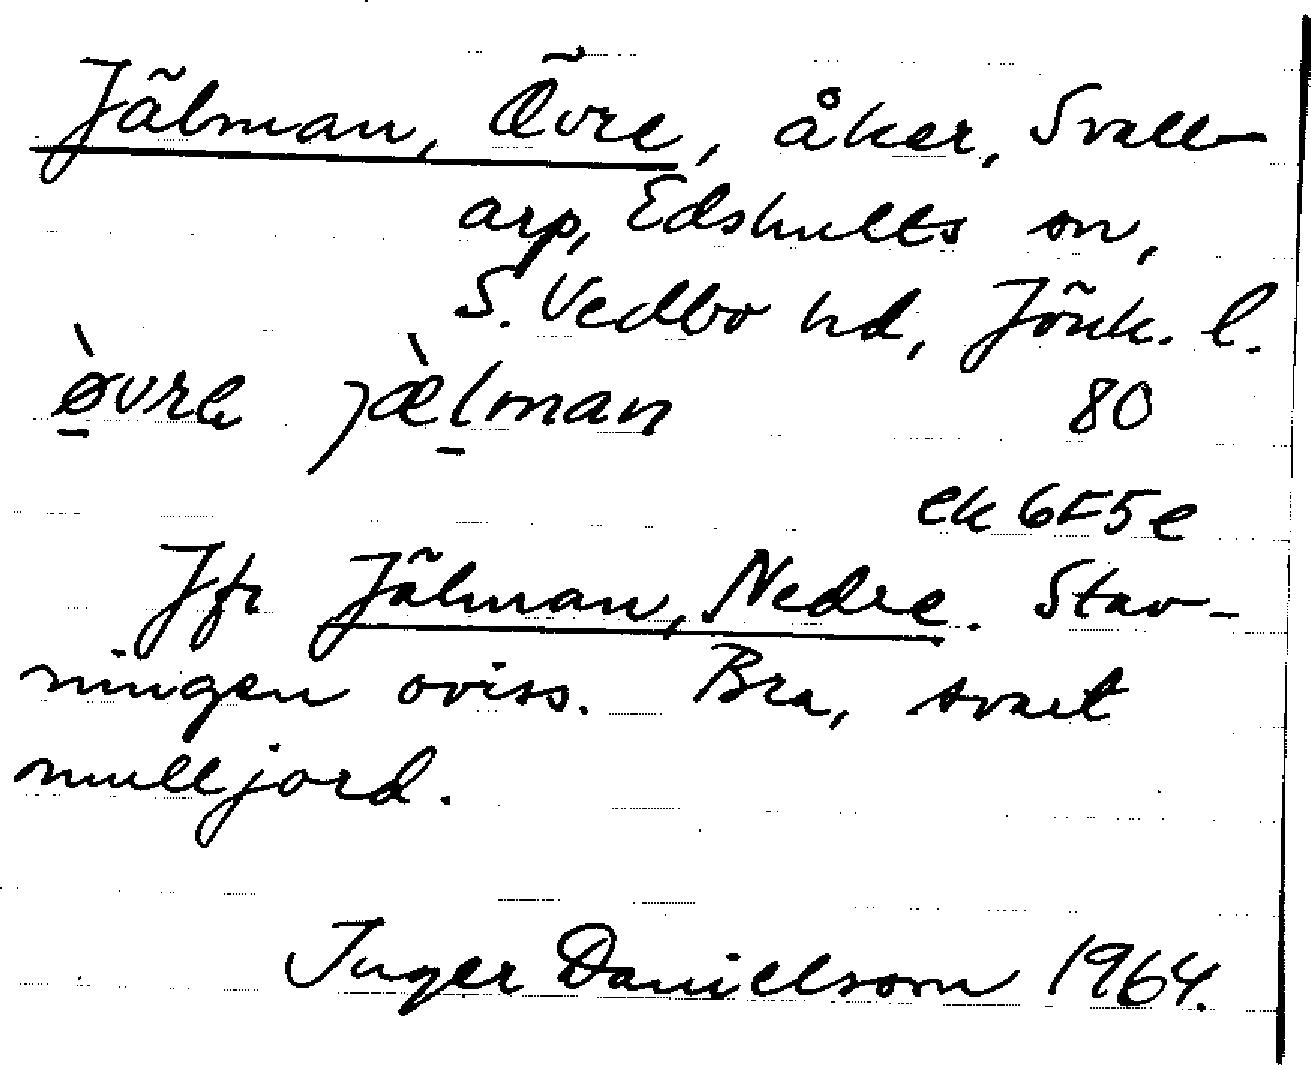 Jälman, Övre, åker, Svall-
arp, Edshults sn,
S. Vedbo hd, Jönk. l.
ø̱̀vrə jæ̀l̠man 80
ek 6F5e
Jfr Jälman, Nedre. Stav-
ningen oviss. Bra, svart
mulljord.
Inger Danielsson 1964.